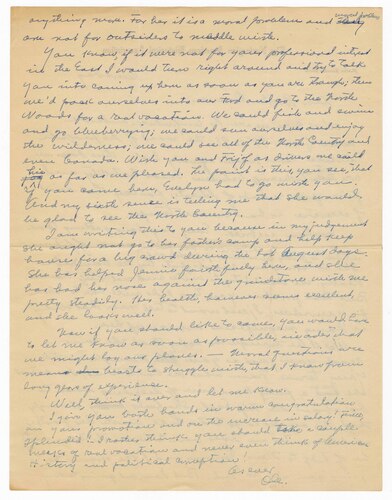 anything more. For her it is a moral problem and
are not for outsiders to meddle with.
You know if it were not for your professional interest
in the East I would turn right around and try to talk
you into coming up here as soon as you are through, then
we'd pack ourselves into our Ford and go to the North
Woods for a real vacation. We could fish and swim
and go blueberrying; we could sun ourselves and enjoy
the wilderness; we could see all of the North Country and
even Canada. With you and as drivers we could
go as far as we pleased. The point is this, you see, that
if you came here, Evelyn had to go with you,
And my sixth sense is telling me that she would
be glad to see the North Country.
I am writing this to you because in my judgement
she ought not go to her father's camp and help keep
house for a big crowd during the hot August days.
She has helped Jennie faithfully here, and she
has had her nose against the grindstone with me
pretty steadily. Her health however seems excellent,
and she looks well.
Now if you should like to come, you would have
to let me know as soon as possible, in order that
we might lay our plans. — Moral questions are
mean beasts to struggle with, that I know from
long years of experience.
Well, think it over and let me know.
I give you both hands in warm congratulation
on your promotion and on the increase in salary! Fine,
splendid! I rather think you should take a couple
weeks of real vacation and never even think of American
History and political corruption!
As ever,